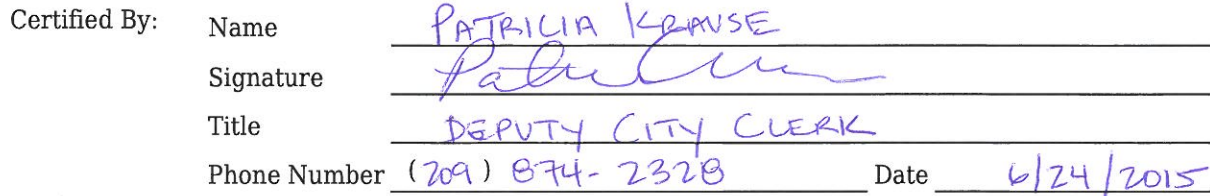 Certified By: Name PATRICIA KRAUSE
Signature
Title DEPUTY CITY CLERK
Phone Number (209) 874-2328 Date 6/24/2015